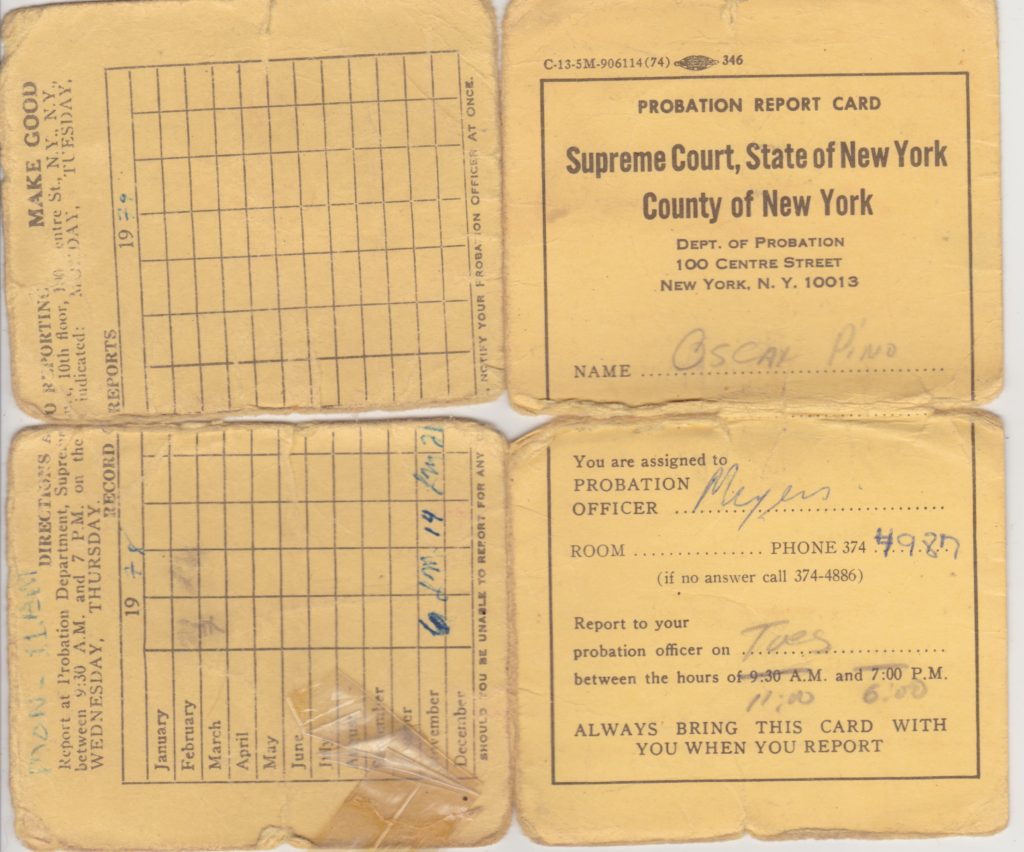 C-13-5M-906114(74) 346
PROBATION REPORT CARD
Supreme Court, State of New York
County of New York
DEPT. OF PROBATION
100 CENTRE STREET
NEW YORK, N. Y. 10013
NAME Oscar Pino
You are assigned to
PROBATION
OFFICER Meyers
ROOM PHONE 374 4987
(if no answer call 374-4886)
Report to your
probation officer on Tues
between the hours of 9:30 A.M. and 7:00 P.M.
11:00 6:00
ALWAYS BRING THIS CARD WITH
YOU WHEN YOU REPORT
MON - 11AM
DIRECTIONS REPORTING MAKE GOOD
Report at Probation Department, 10th floor, Centre St., N.Y., N.Y.,
between 9:30 A.M. and 7 P.M. on the indicated: TUESDAY,
WEDNESDAY, THURSDAY.
RECORD REPORTS
19 78 19 79
January
February
March
April
May
June
November 6 14 21
December
SHOULD YOU BE UNABLE TO REPORT FOR ANY NOTIFY YOUR PROBATION OFFICER AT ONCE.